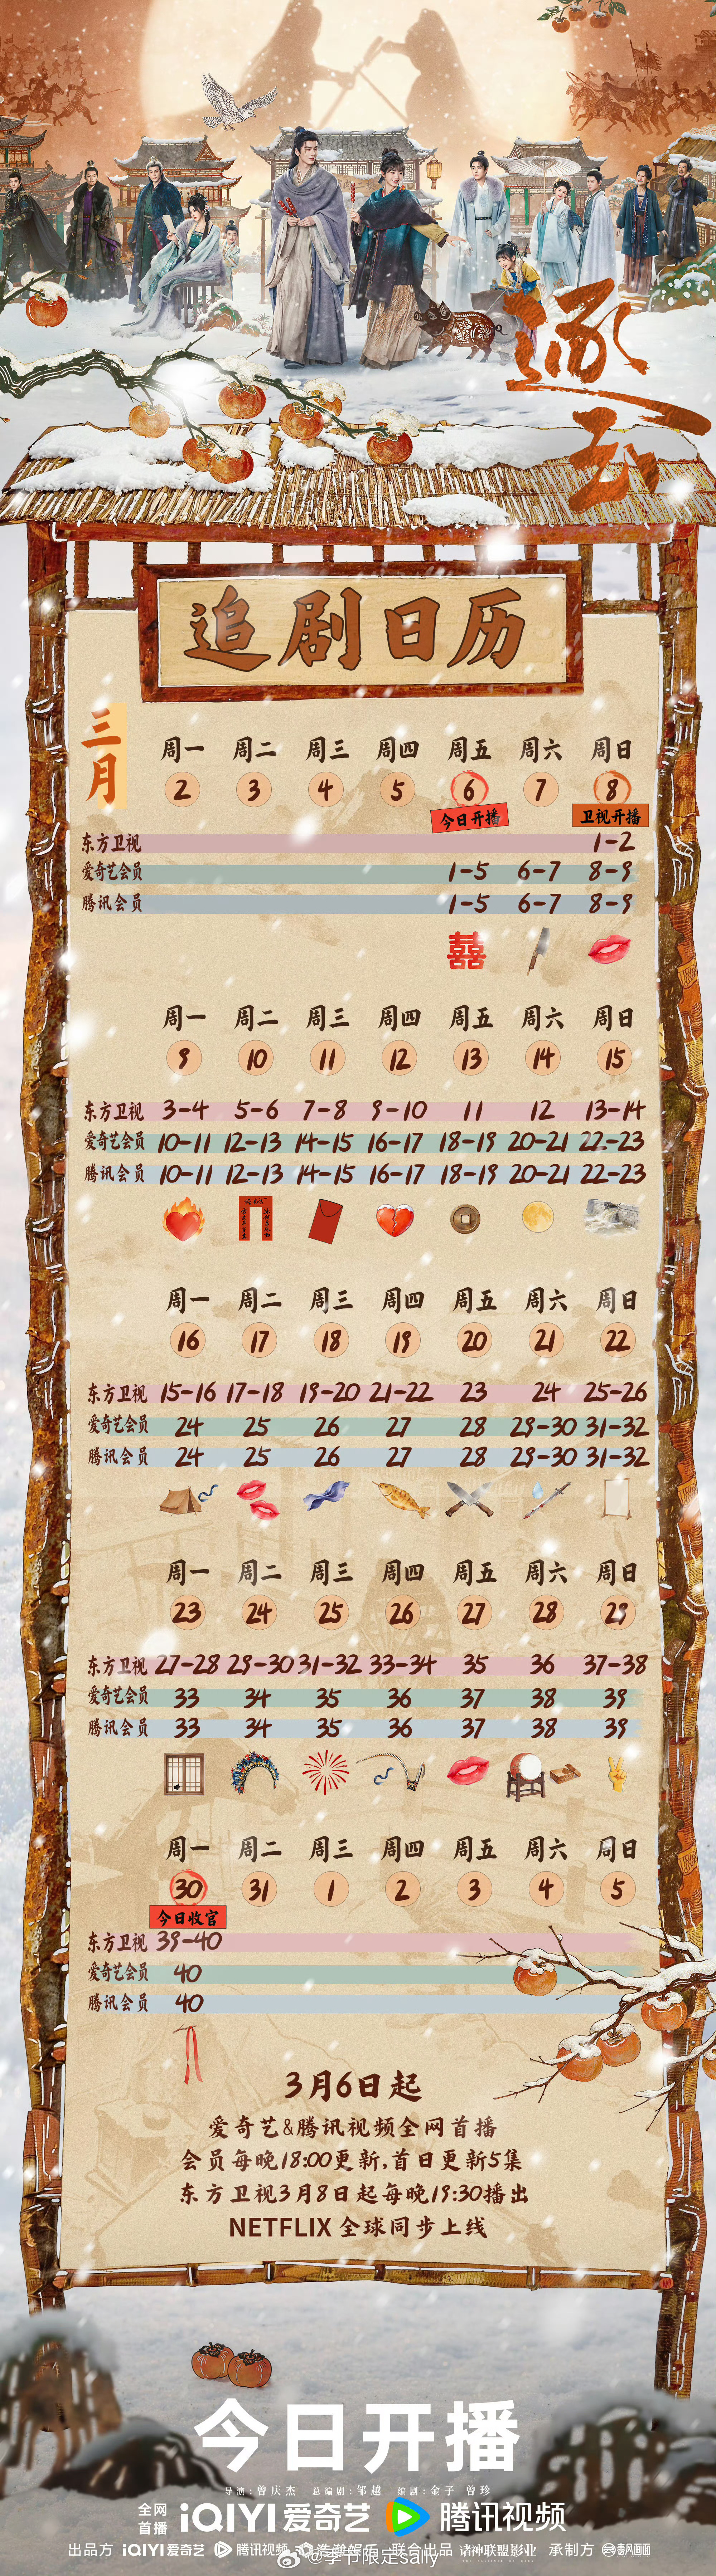 逐玉
追剧日历
三月
周一 周二 周三 周四 周五 周六 周日
2 3 4 5 6 7 8
今日开播 卫视开播
东方卫视 1-2
爱奇艺会员 1-5 6-7 8-9
腾讯会员 1-5 6-7 8-9
囍
周一 周二 周三 周四 周五 周六 周日
9 10 11 12 13 14 15
东方卫视 3-4 5-6 7-8 9-10 11 12 13-14
爱奇艺会员 10-11 12-13 14-15 16-17 18-19 20-21 22-23
腾讯会员 10-11 12-13 14-15 16-17 18-19 20-21 22-23
周一 周二 周三 周四 周五 周六 周日
16 17 18 19 20 21 22
东方卫视 15-16 17-18 19-20 21-22 23 24 25-26
爱奇艺会员 24 25 26 27 28 29-30 31-32
腾讯会员 24 25 26 27 28 29-30 31-32
周一 周二 周三 周四 周五 周六 周日
23 24 25 26 27 28 29
东方卫视 27-28 29-30 31-32 33-34 35 36 37-38
爱奇艺会员 33 34 35 36 37 38 39
腾讯会员 33 34 35 36 37 38 39
周一 周二 周三 周四 周五 周六 周日
30 31 1 2 3 4 5
今日收官
东方卫视 39-40
爱奇艺会员 40
腾讯会员 40
3月6日起
爱奇艺&腾讯视频全网首播
会员每晚18:00更新,首日更新5集
东方卫视3月8日起每晚19:30播出
NETFLIX 全球同步上线
今日开播
导演:曾庆杰 总编剧:邹越 编剧:金子 曾珍
全网首播 iQIYI 爱奇艺 腾讯视频
出品方 iQIYI 爱奇艺 腾讯视频 浩瀚娱乐 联合出品 诸神联盟影业 承制方 春风画面
@季节限定sally